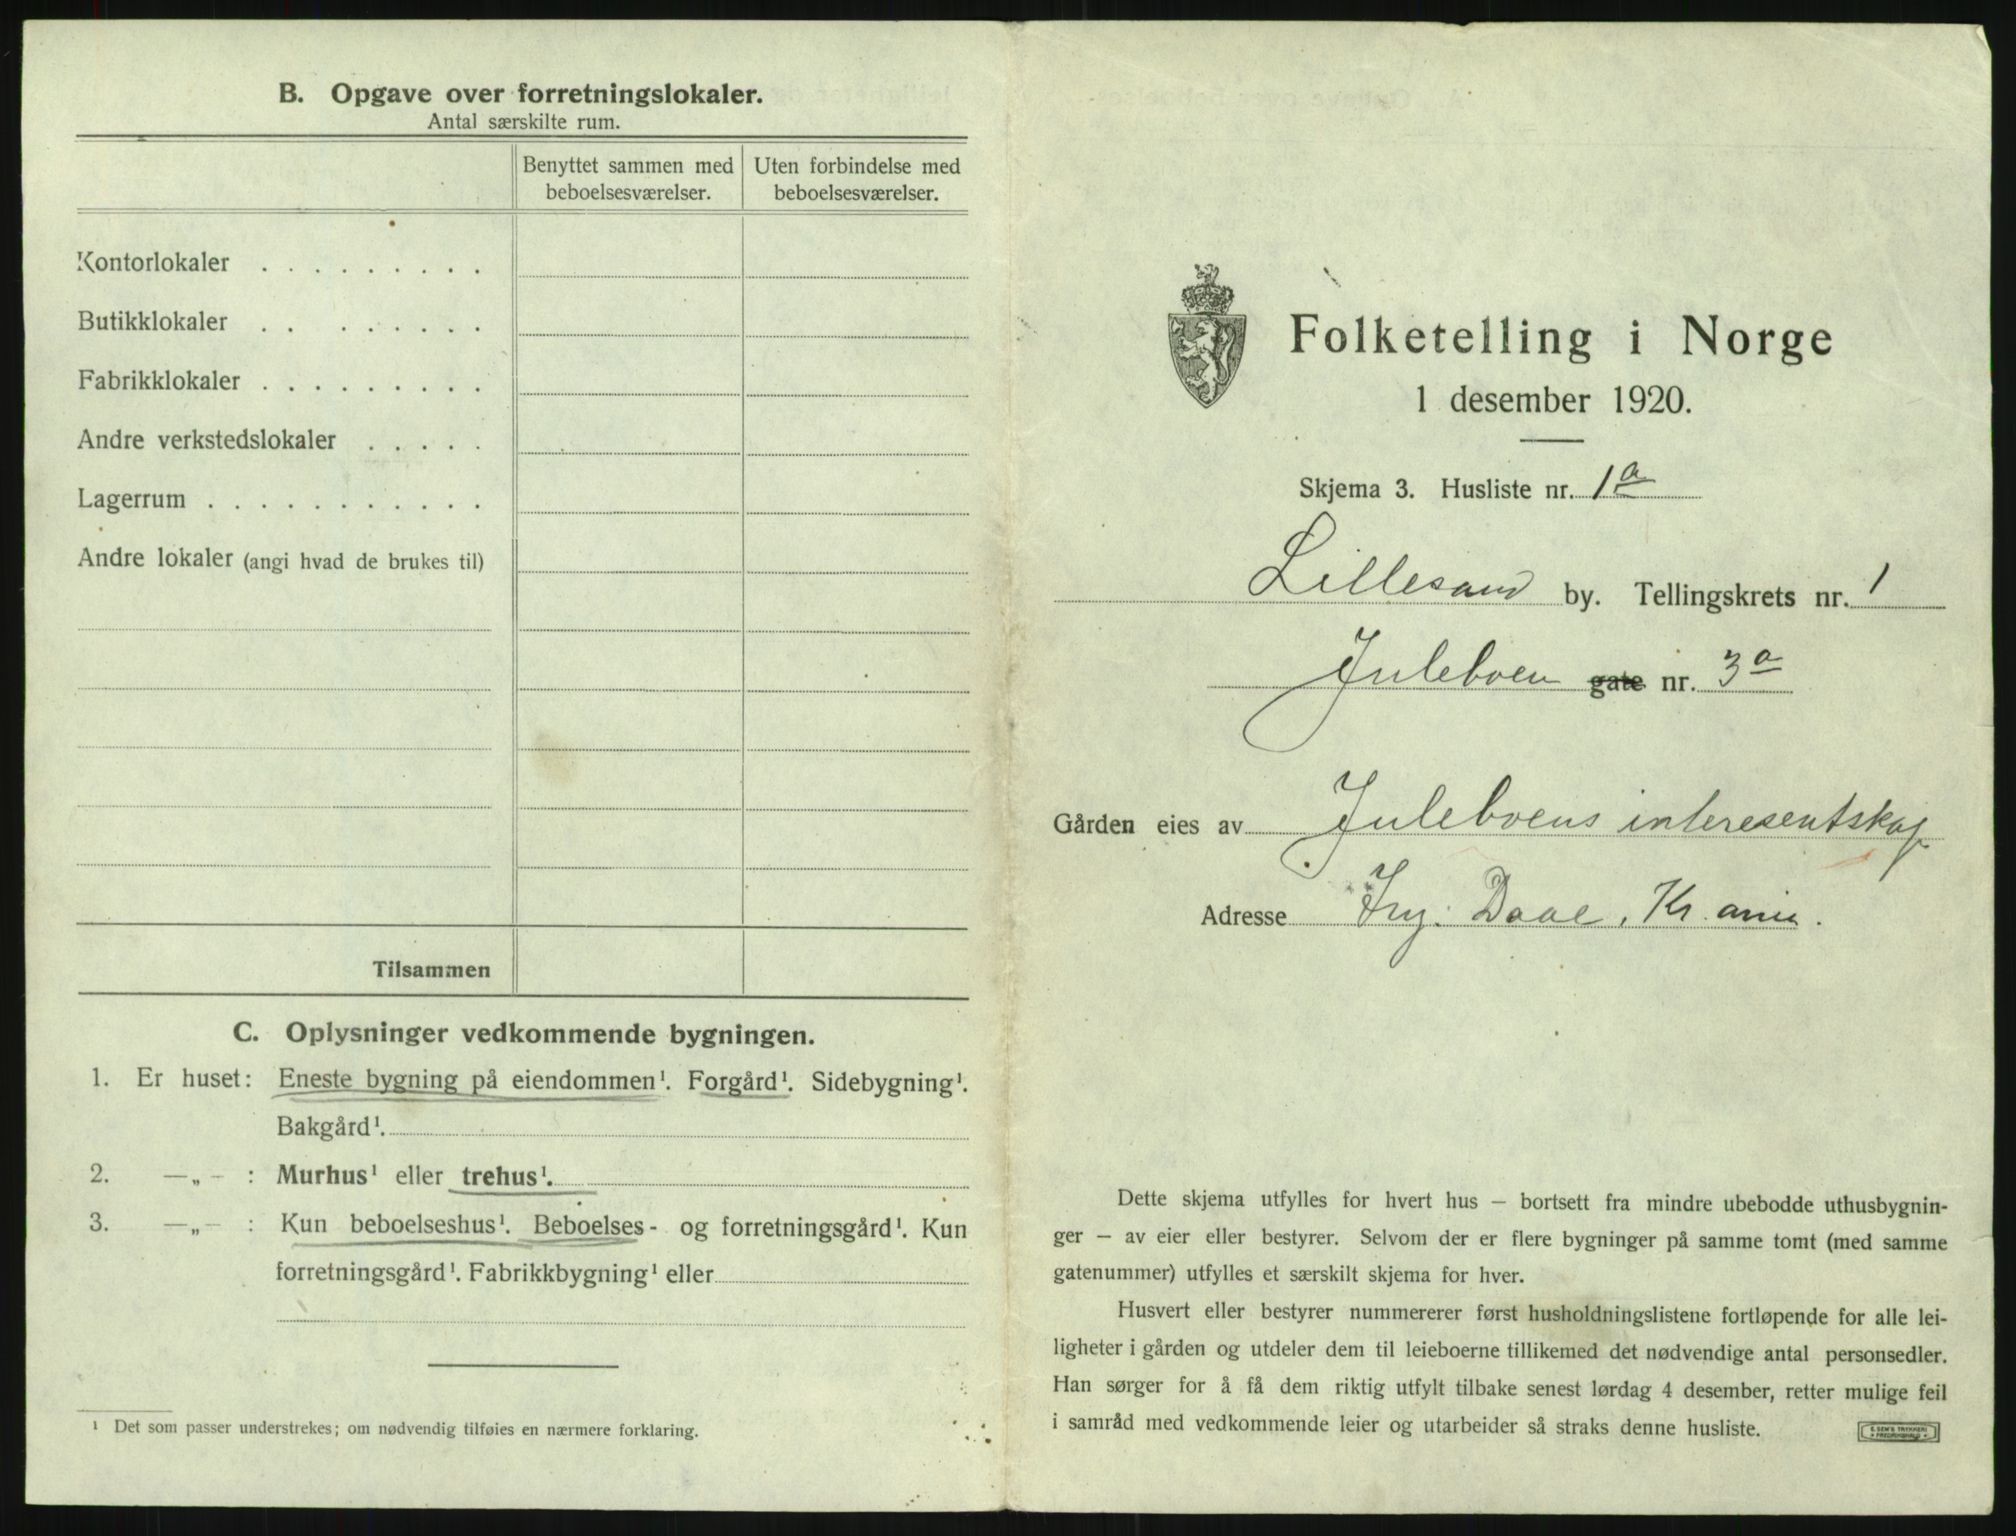 B. Opgave over forretningslokaler.
Antal særskilte rum.
Benyttet sammen med beboelsesværelser.
Uten forbindelse med beboelsesværelser.
Kontorlokaler . . . . . . . . .
Butikklokaler . . . . . . . .
Fabrikklokaler . . . . . . . . .
Andre verkstedslokaler . . . . .
Lagerrum . . . . . . . . . . .
Andre lokaler (angi hvad de brukes til)
Tilsammen
C. Oplysninger vedkommende bygningen.
1. Er huset: Eneste bygning på eiendommen¹. Forgård¹. Sidebygning¹.
Bakgård¹.
2. —„— : Murhus¹ eller trehus¹.
3. —„— : Kun beboelseshus¹. Beboelses- og forretningsgård¹. Kun
forretningsgård¹. Fabrikkbygning¹ eller
¹ Det som passer understrekes; om nødvendig tilføies en nærmere forklaring.
Folketelling i Norge
1 desember 1920.
Skjema 3. Husliste nr. 1a
Lillesand by. Tellingskrets nr. 1
Juleboen gate nr. 3a
Gården eies av Juleboens interesentskap
Adresse Ing. Daae, Kr.ania.
Dette skjema utfylles for hvert hus – bortsett fra mindre ubebodde uthusbygnin-
ger – av eier eller bestyrer. Selvom der er flere bygninger på samme tomt (med samme
gatenummer) utfylles et særskilt skjema for hver.
Husvert eller bestyrer nummererer først husholdningslistene fortløpende for alle lei-
ligheter i gården og utdeler dem til leieboerne tillikemed det nødvendige antal personsedler.
Han sørger for å få dem riktig utfylt tilbake senest lørdag 4 desember, retter mulige feil
i samråd med vedkommende leier og utarbeider så straks denne husliste.
E. SEM'S TRYKKERI
FREDRIKSHALD